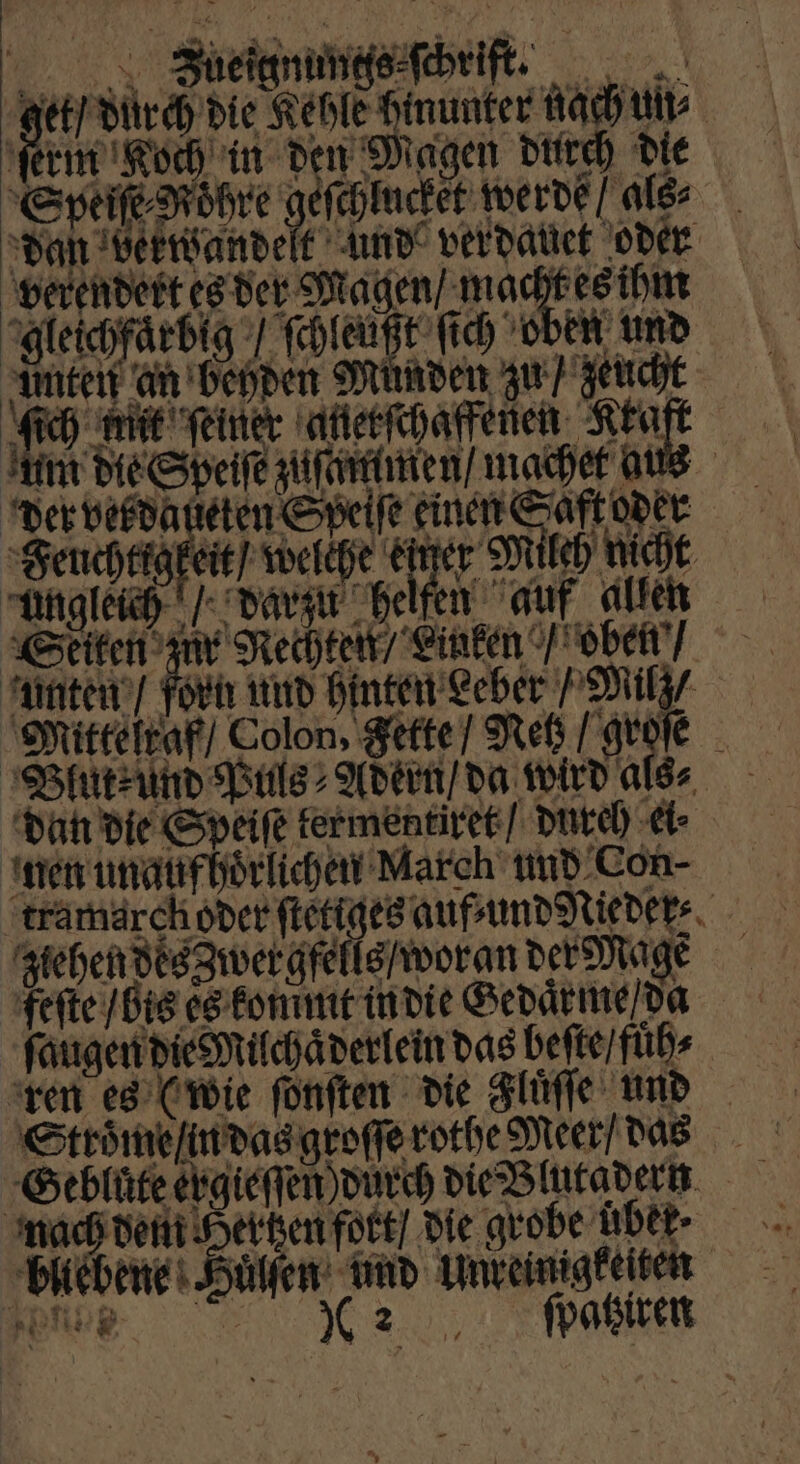 Zueignungs-ſchrift.
get/ durch die Kehle hinunter nach un-
ſerm Koch in den Magen durch die
Speiſe-Roͤhre geſchlucket werde/ als-
dan verwandelt und verdauet oder
verendert es der Magen/ macht es ihm
gleichfaͤrbig / ſchleuſzt ſich oben und
unten an beyden Munden zu/ zeucht
ſich mit ſeiner anerſchaffenen Kraft
um die Speiſe zuſammen/ machet aus
der verdaueten Speiſe einen Saft oder
Feuchtigkeit/ welche einer Milch nicht
ungleich / darzu helfen auf allen
Seiten zur Rechten/ Linken / oben /
unten / forn und hinten Leber / Milz/
Mittelraf/ Colon, Fette / Netz / groſe
Blut-und Puls-Adern/ da wird als-
dan die Speiſe fermentiret / durch ei-
nen unaufhoͤrlichen March und Con-
tramarch oder ſtetiges auf-und Nieder-
ziehen des Zwergfells/ woran der Magẽ
feſte / bis es kommt in die Gedaͤrme/ da
ſaugen die Milchaͤderlein das beſte/ fuͤh-
ren es (wie ſonſten die Fluͤſſe und
Stroͤme/ in das groſſe rothe Meer/ das
Gebluͤte ergieſſen) durch die Blutadern
nach dem Hertzen fort/ die grobe uͤber-
bliebene Huͤlſen und Unreinigkeiten
)( 2 ſpatziren